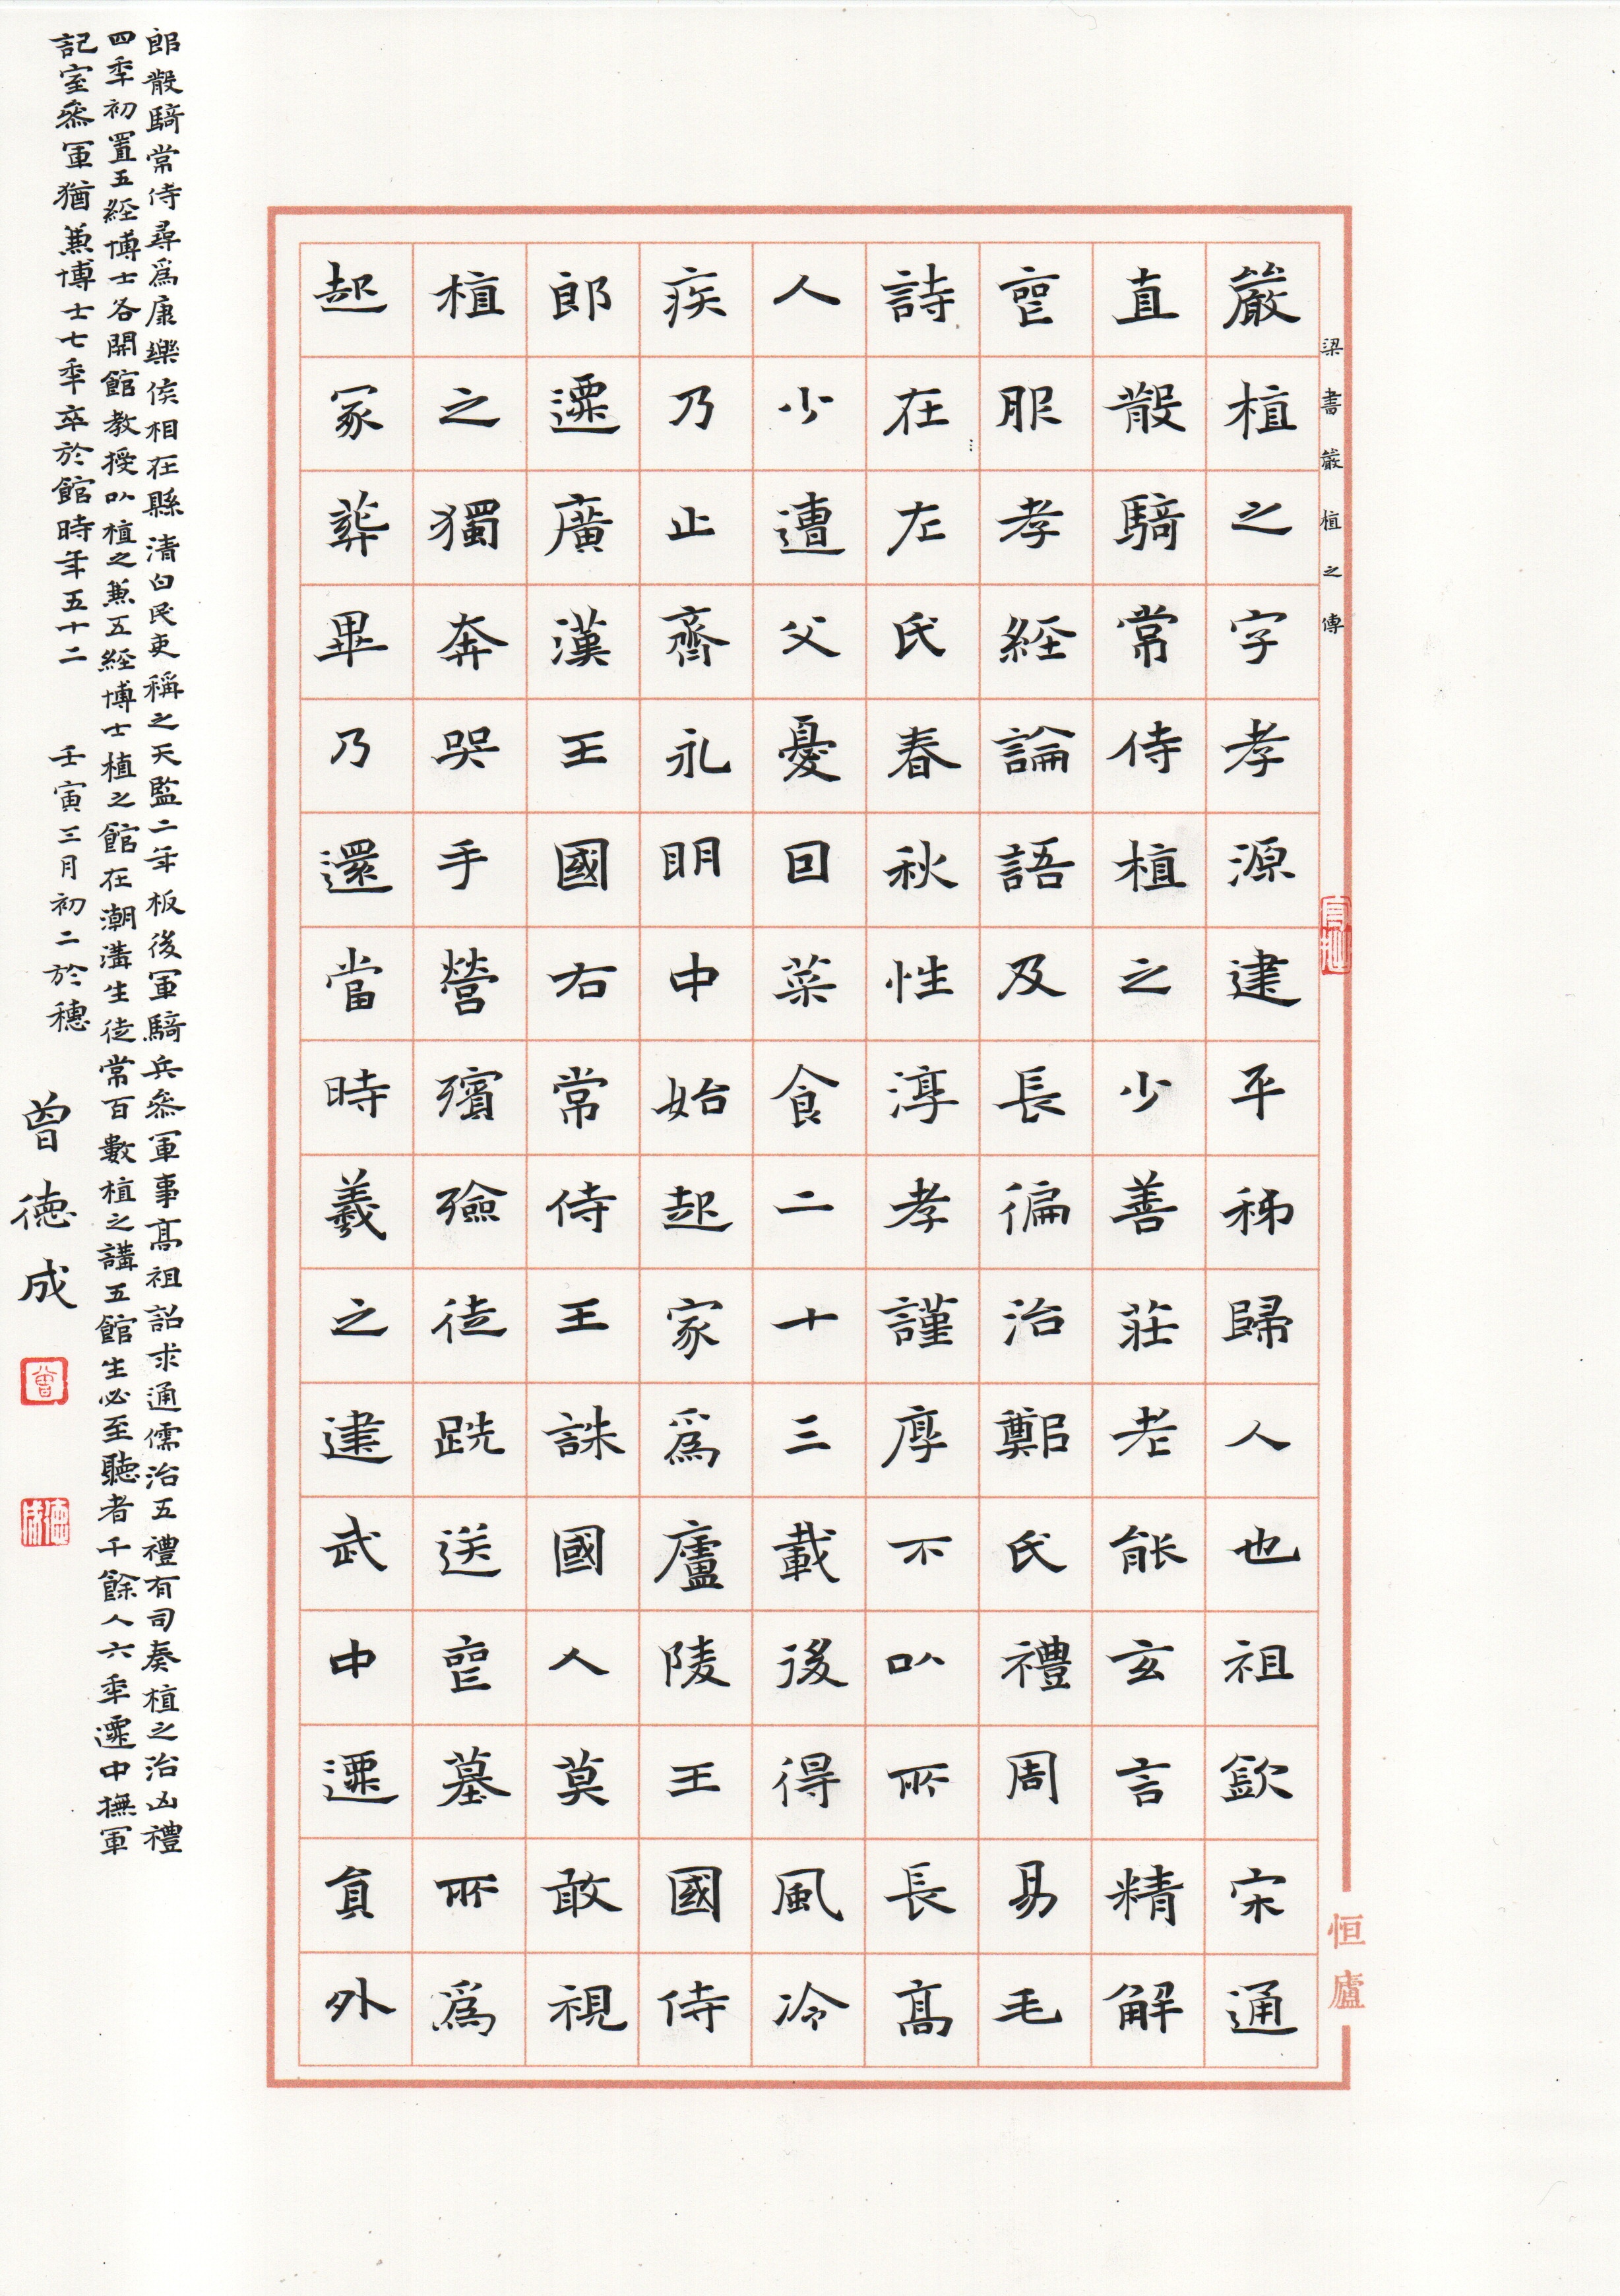 梁書嚴植之傳
嚴植之字孝源建平秭歸人也祖歆宋通
直散騎常侍植之少善莊老能玄言精解
喪服孝經論語及長徧治鄭氏禮周易毛
詩在左氏春秋性淳孝謹厚不以所長高
人少遭父憂因菜食二十三載後得風冷
疾乃止齊永明中始起家爲廬陵王國侍
郎遷廣漢王國右常侍王誅國人莫敢視
植之獨奔哭手營殯殮徒跣送喪墓所爲
起冢葬畢乃還當時義之建武中遷員外
郎散騎常侍尋爲康樂侯相在縣清白民吏稱之天監二年板後軍騎兵參軍事高祖詔求通儒治五禮有司奏植之治凶禮
四年初置五經博士各開館教授以植之兼五經博士植之館在潮溝生徒常百數植之講五館生必至聽者千餘人六年遷中撫軍
記室參軍猶兼博士七年卒於館時年五十二 壬寅三月初二於穗
曾德成
曾
德成
恒廬